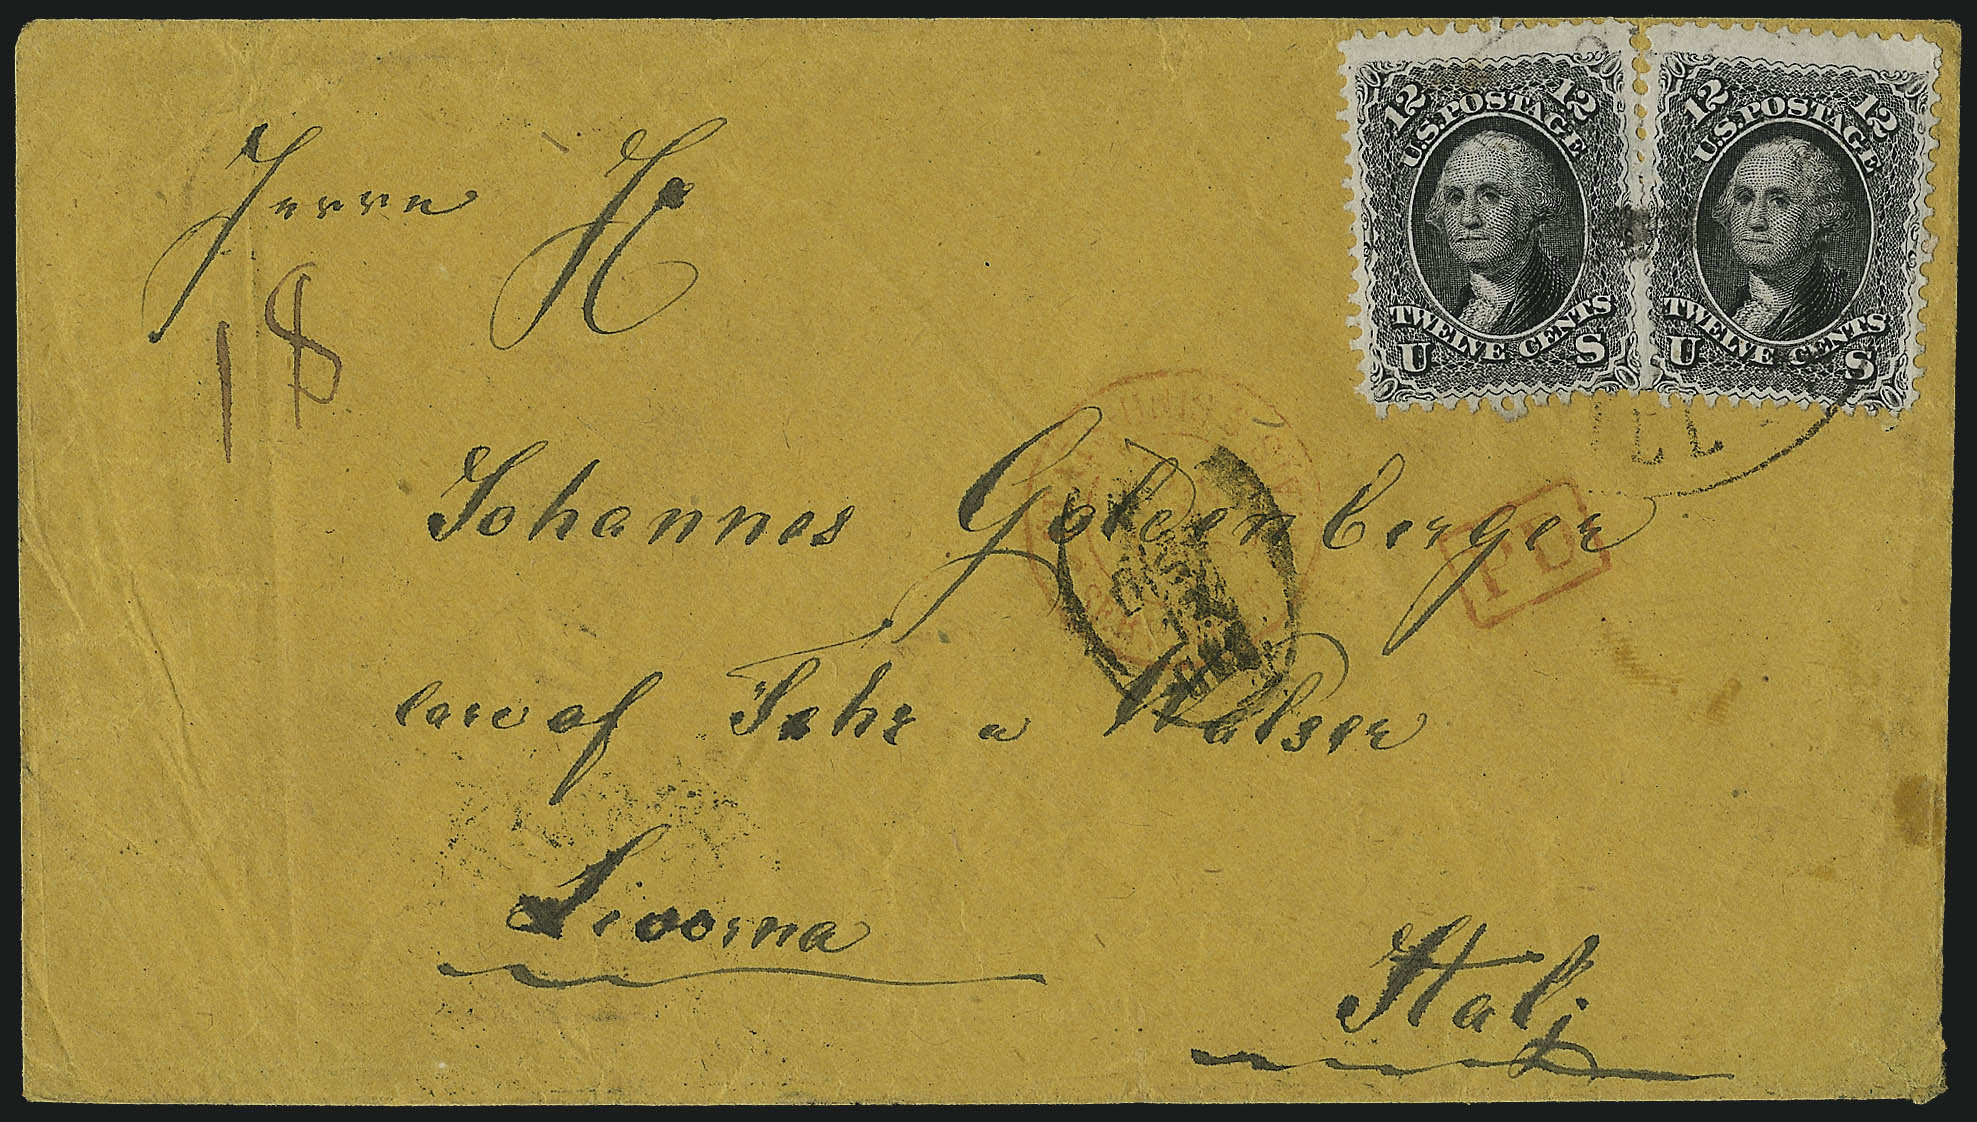 12 12
U.S. POSTAGE
TWELVE CENTS
U S
12 12
U.S. POSTAGE
TWELVE CENTS
U S
Herrn H
18
Johannes Goldenberger
ILL
PD
care of Fehr u Walser
Livorna
Italj